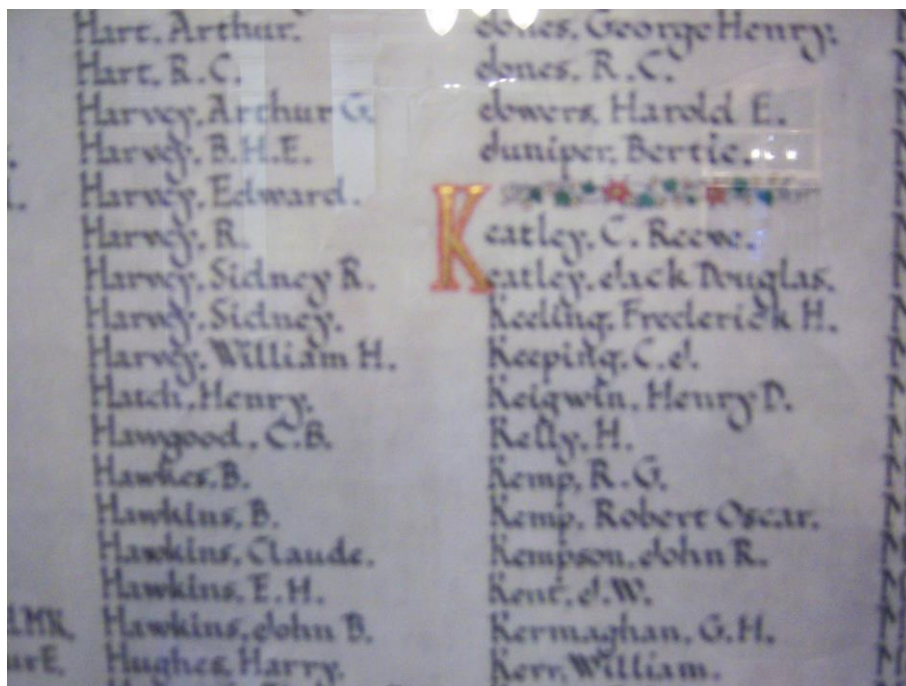 Hart, Arthur.
Hart, R.C.
Harvey, Arthur G.
Harvey, B.H.E.
Harvey, Edward.
Harvey, R.
Harvey, Sidney R.
Harvey, Sidney.
Harvey, William H.
Hatch, Henry.
Hawgood, C.B.
Hawkes, B.
Hawkins, B.
Hawkins, Claude.
Hawkins, E.H.
Hawkins, John B.
Hughes, Harry.
Jones, George Henry.
Jones, R.C.
Jowers, Harold E.
Juniper, Bertie.
Keatley, C. Reeve.
Keatley, Jack Douglas.
Keeling, Frederick H.
Keeping, C.J.
Keigwin, Henry D.
Kelly, H.
Kemp, R.G.
Kemp, Robert Oscar.
Kempson, John R.
Kent, J.W.
Kermaghan, G.H.
Kerr, William.